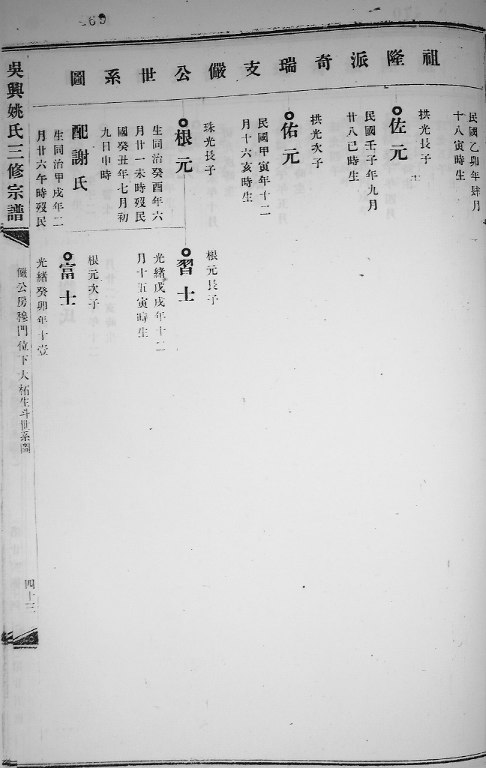 69
祖隆派奇瑞支儼公世系圖
民國乙卯年肆月
十八寅時生
拱光長子
佐元
民國壬子年九月
廿八巳時生
拱光次子
佑元
民國甲寅年十二
月十六亥時生
珠光長子
根元
生同治癸酉年六
月廿一未時歿民
國癸丑年七月初
九日申時
配謝氏
生同治甲戌年二
月廿六午時歿民
根元長子
習士
光緒戊戌年十二
月十五寅時生
根元次子
富士
光緒癸卯年十壹
吳興姚氏三修宗譜
儼公房豫門位下大柘生斗世系圖
四十三